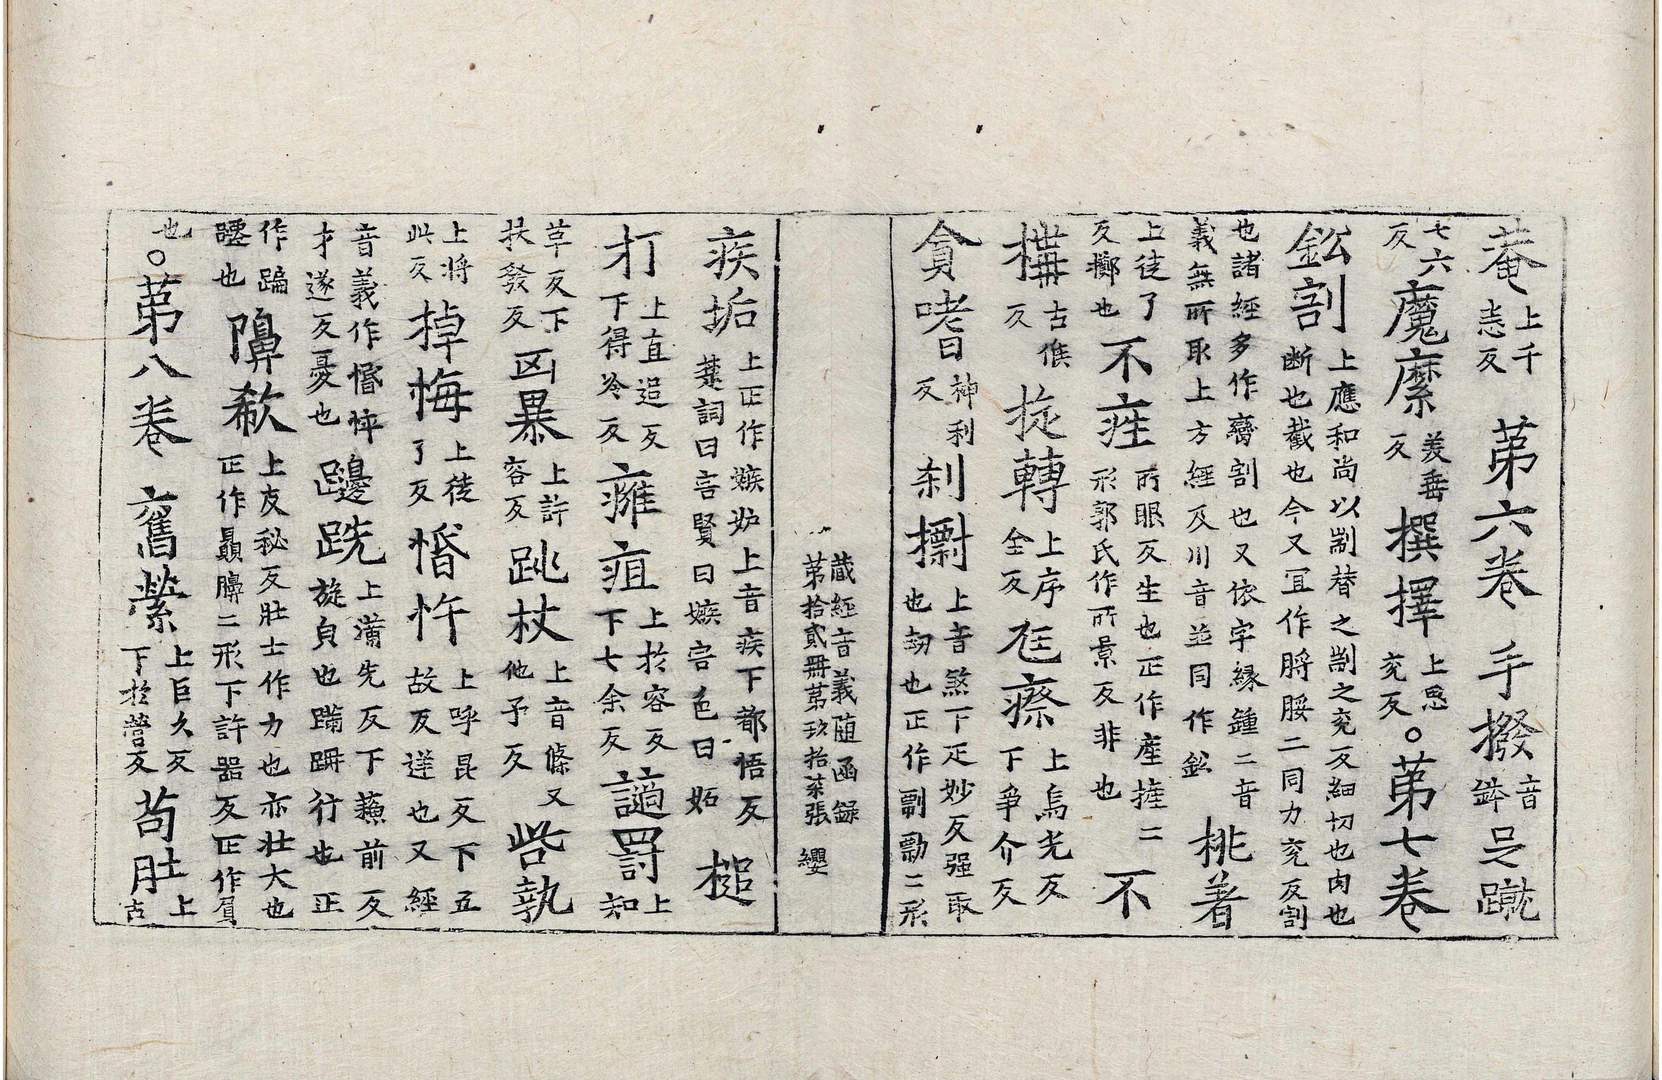 菴上千恚反　第六卷　手撥音鉢足蹴
七六反魔縻美垂反撰擇上思兖反。第七卷
鈆割上應和尚以剬替之剬之兖反細切也肉也断也截也今又冝作𦟛腝二同力兖反割
也諸經多作臠割也又依字緣鍾二音義無所取上方經及川音並同作鈆　桃着
上徒了反擲也不㽵所眼反生也正作産摌二形郭氏作所景反非也　不
構古候反　㨀轉上序全反尫瘵上烏光反下爭介反
貪嗜神利反刹㩰上音煞下疋妙反强取也劫也正作剽勡二形
藏經音義随函録第拾貳冊第玖拾柒張　纓
疾垢上正作嫉妒上音疾下都悟反楚詞曰害賢曰嫉害色曰妬　槌
打上直追反下得冷反癰疽上於容反下七余反讁罰上知
草反下扶發反凶暴上許容反跳杖上音條又他予反呰執
上將此反掉悔上徒了反惛忤上呼昆反下五故反逆也又經
音義作惛怦才遂反憂也蹮跣上蒲先反下蘓前反旋皃也蹣跚行也正
作蹁躚也贔㰿上皮秘反壯士作力也亦壯大也正作贔㱉二形下許器反正作屓
也。第八卷　舊縈上巨久反下於營反苟肚上古